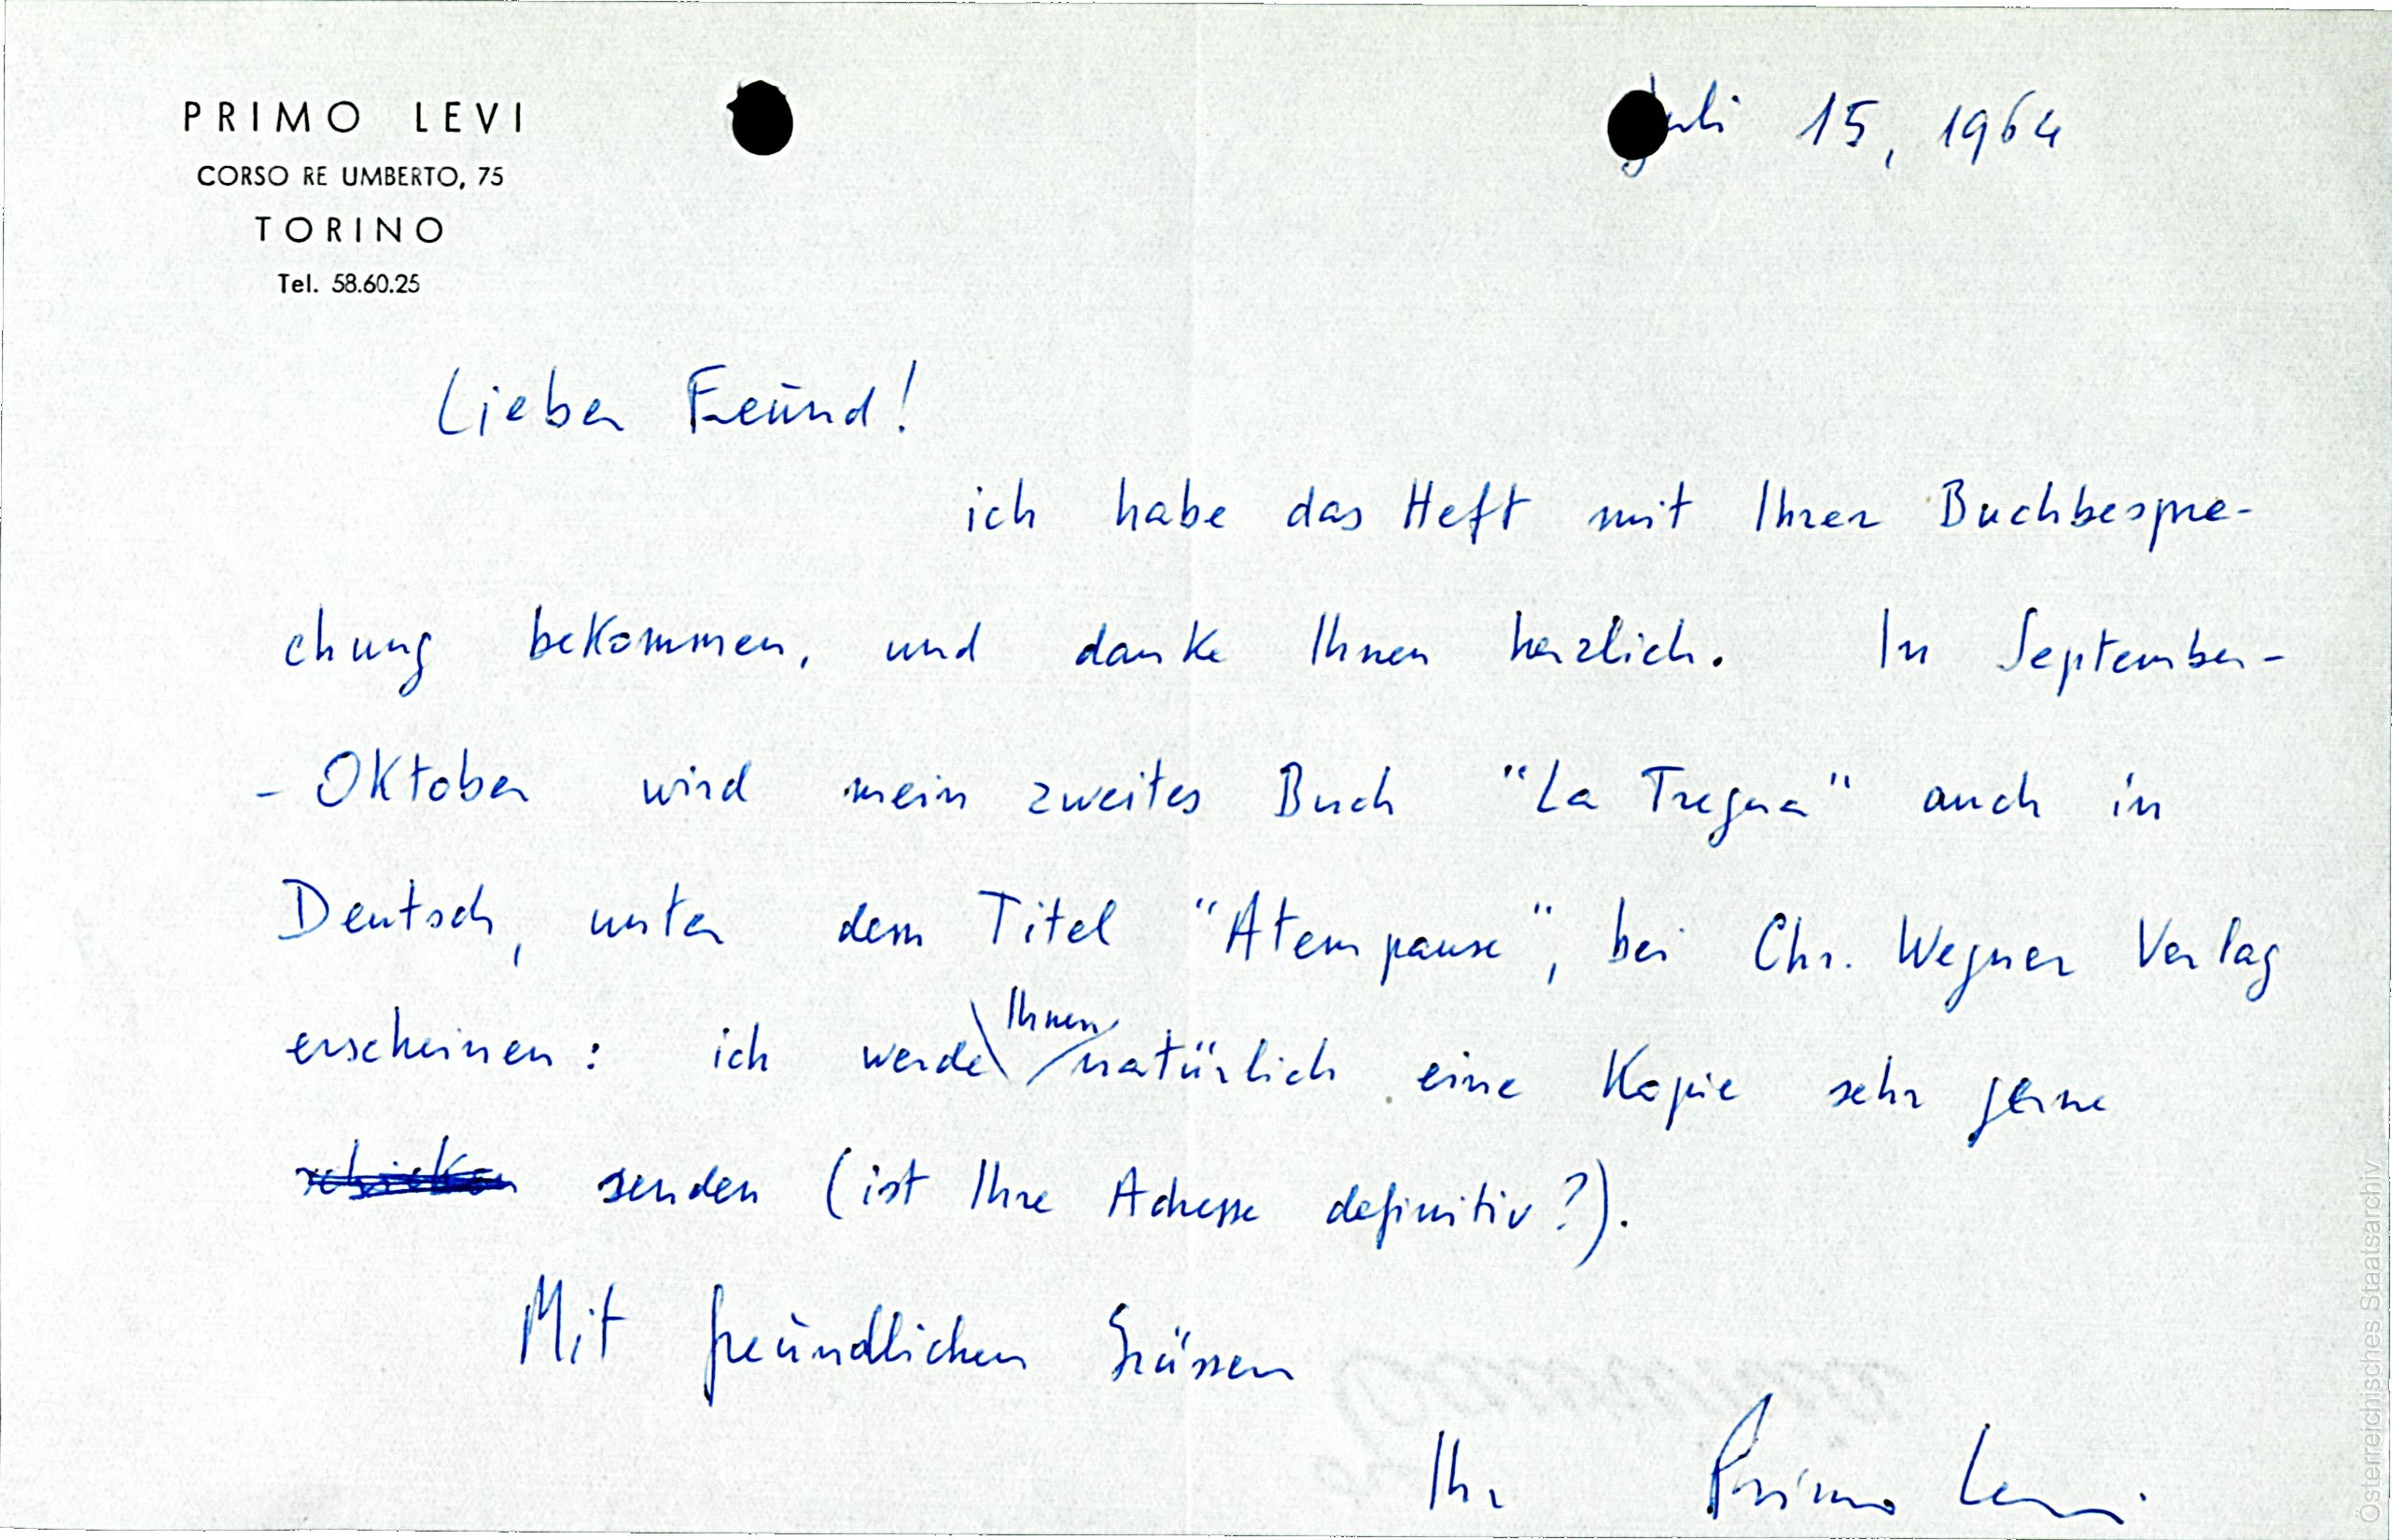 PRIMO LEVI
CORSO RE UMBERTO, 75
TORINO
Tel. 58.60.25
Juli 15, 1964
Lieber Freund!
ich habe das Heft mit Ihrer Buchbespre-
chung bekommen, und danke Ihnen herzlich. In September-
- Oktober wird mein zweites Buch "La Tregua" auch in
Deutsch, unter dem Titel "Atempause", bei Chr. Wegner Verlag
erscheinen: ich werde Ihnen natürlich eine Kopie sehr gerne
schicken senden (ist Ihre Adresse definitiv?).
Mit freundlichen Grüssen
Ihr Primo Levi
Österreichisches Staatsarchiv